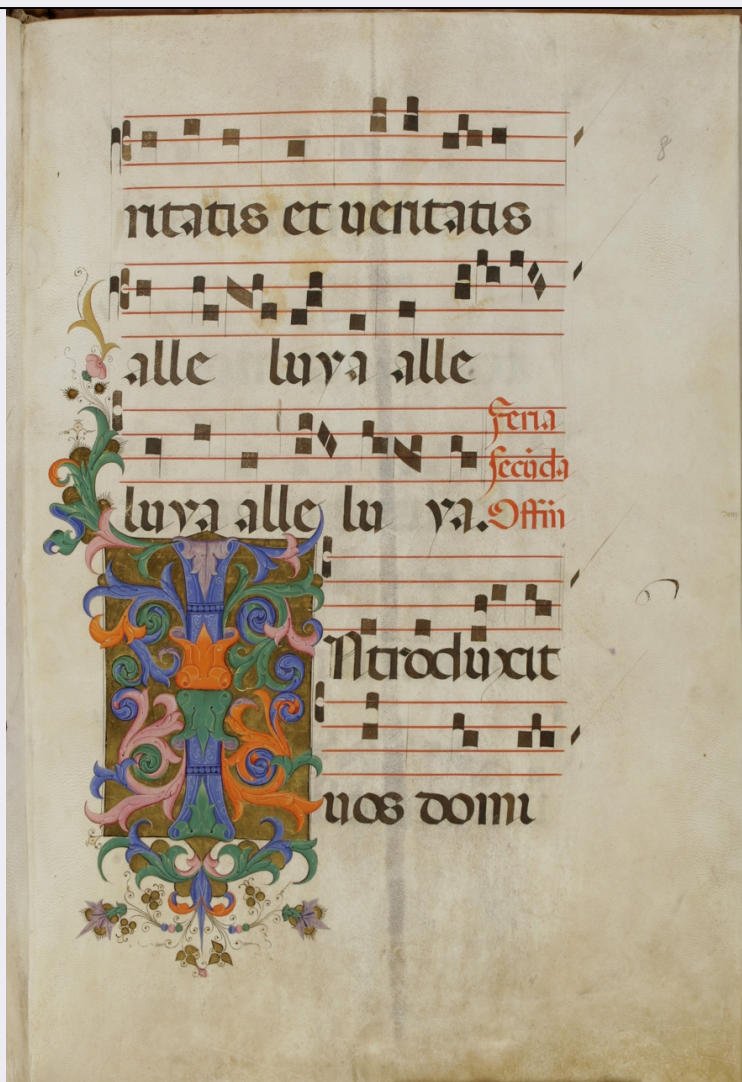 8
ritatis et ueritatis
alle luya alle
feria
secūda
luya alle lu ya. Offiū
Introduxit
uos domi